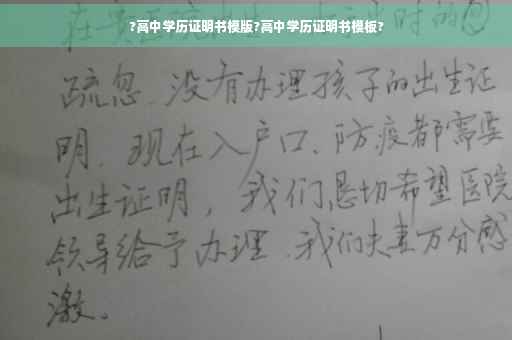 ?高中学历证明书模版?高中学历证明书模板?
疏忽、没有办理孩子的出生证
明、现在入户口、防疫都需要
出生证明，我们恳切希望医院
领导给予办理、我们夫妻万分感
激。